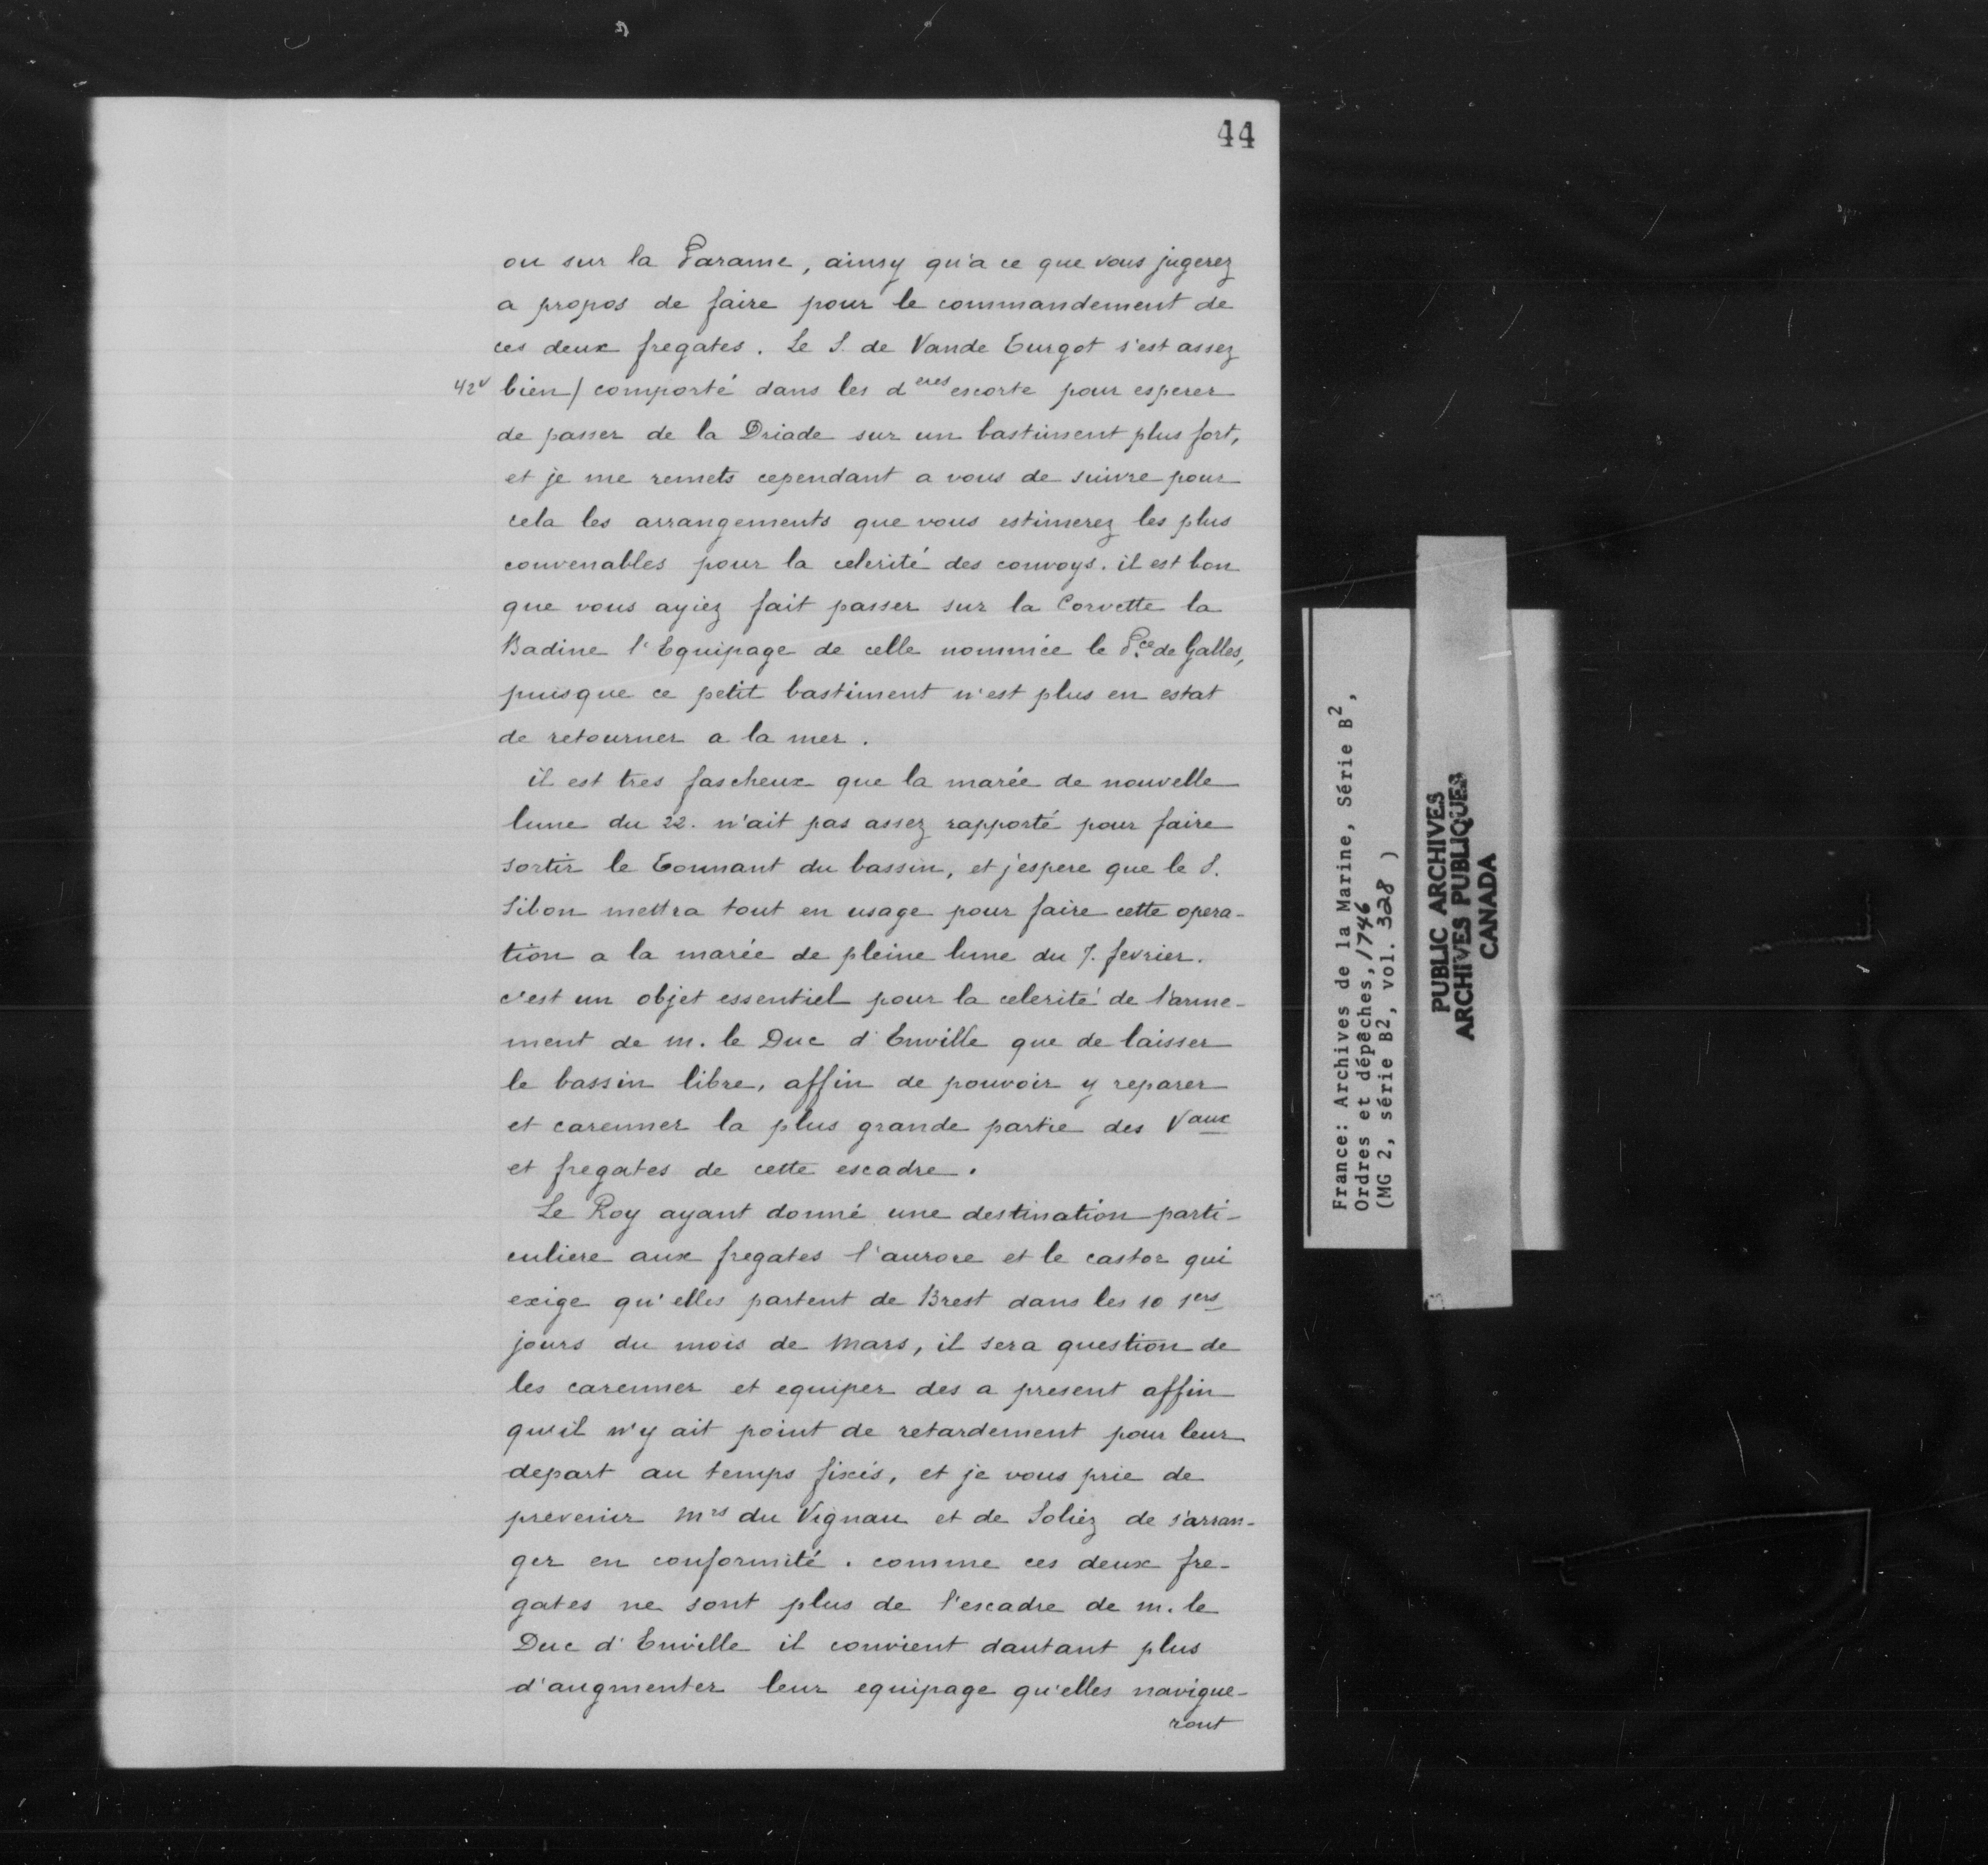 44
ou sur la Parame, ainsy qu'a ce que vous jugerez
a propos de faire pour le commandement de
ces deux fregates. Le S. de Vande Turgot s'est assez
42v bien/ comporté dans les deres escorte pour esperer
de passer de la Driade sur un bastiment plus fort,
et je me remets cependant a vous de suivre pour
cela les arrangements que vous estimerez les plus
convenables pour la celerité des convoys. il est bon
que vous ayiez fait passer sur la Corvette la
Badine l'Equipage de celle nommée le Pce de Galles,
puisque ce petit bastiment n'est plus en estat
de retourner a la mer.
il est tres fascheux que la marée de nouvelle
lune du 22. n'ait pas assez rapporté pour faire
sortir le Tonnant du bassin, et j'espere que le S.
Silon mettra tout en usage pour faire cette opera-
tion a la marée de pleine lune du 7. fevrier.
c'est un objet essentiel pour la celerité de l'arme-
ment de m. le Duc d'Enville que de laisser
le bassin libre, affin de pouvoir y reparer
et carenner la plus grande partie des Vaux
et fregates de cette escadre.
Le Roy ayant donné une destination parti-
culiere aux fregates l'aurore et le castor qui
exige qu'elles partent de Brest dans les 10 1ers
jours du mois de Mars, il sera question de
les carenner et equiper des a present affin
qu'il n'y ait point de retardement pour leur
depart au temps fixés, et je vous prie de
prevenir Mrs du Vignau et de Soliez de s'arran-
ger en conformité. comme ces deux fre-
gates ne sont plus de l'escadre de m. le
Duc d'Enville il convient dautant plus
d'augmenter leur equipage qu'elles navigue-
ront
France: Archives de la Marine, Série B2,
Ordres et dépêches, 1746
(MG 2, série B2, vol. 328 )
PUBLIC ARCHIVES
ARCHIVES PUBLIQUES
CANADA